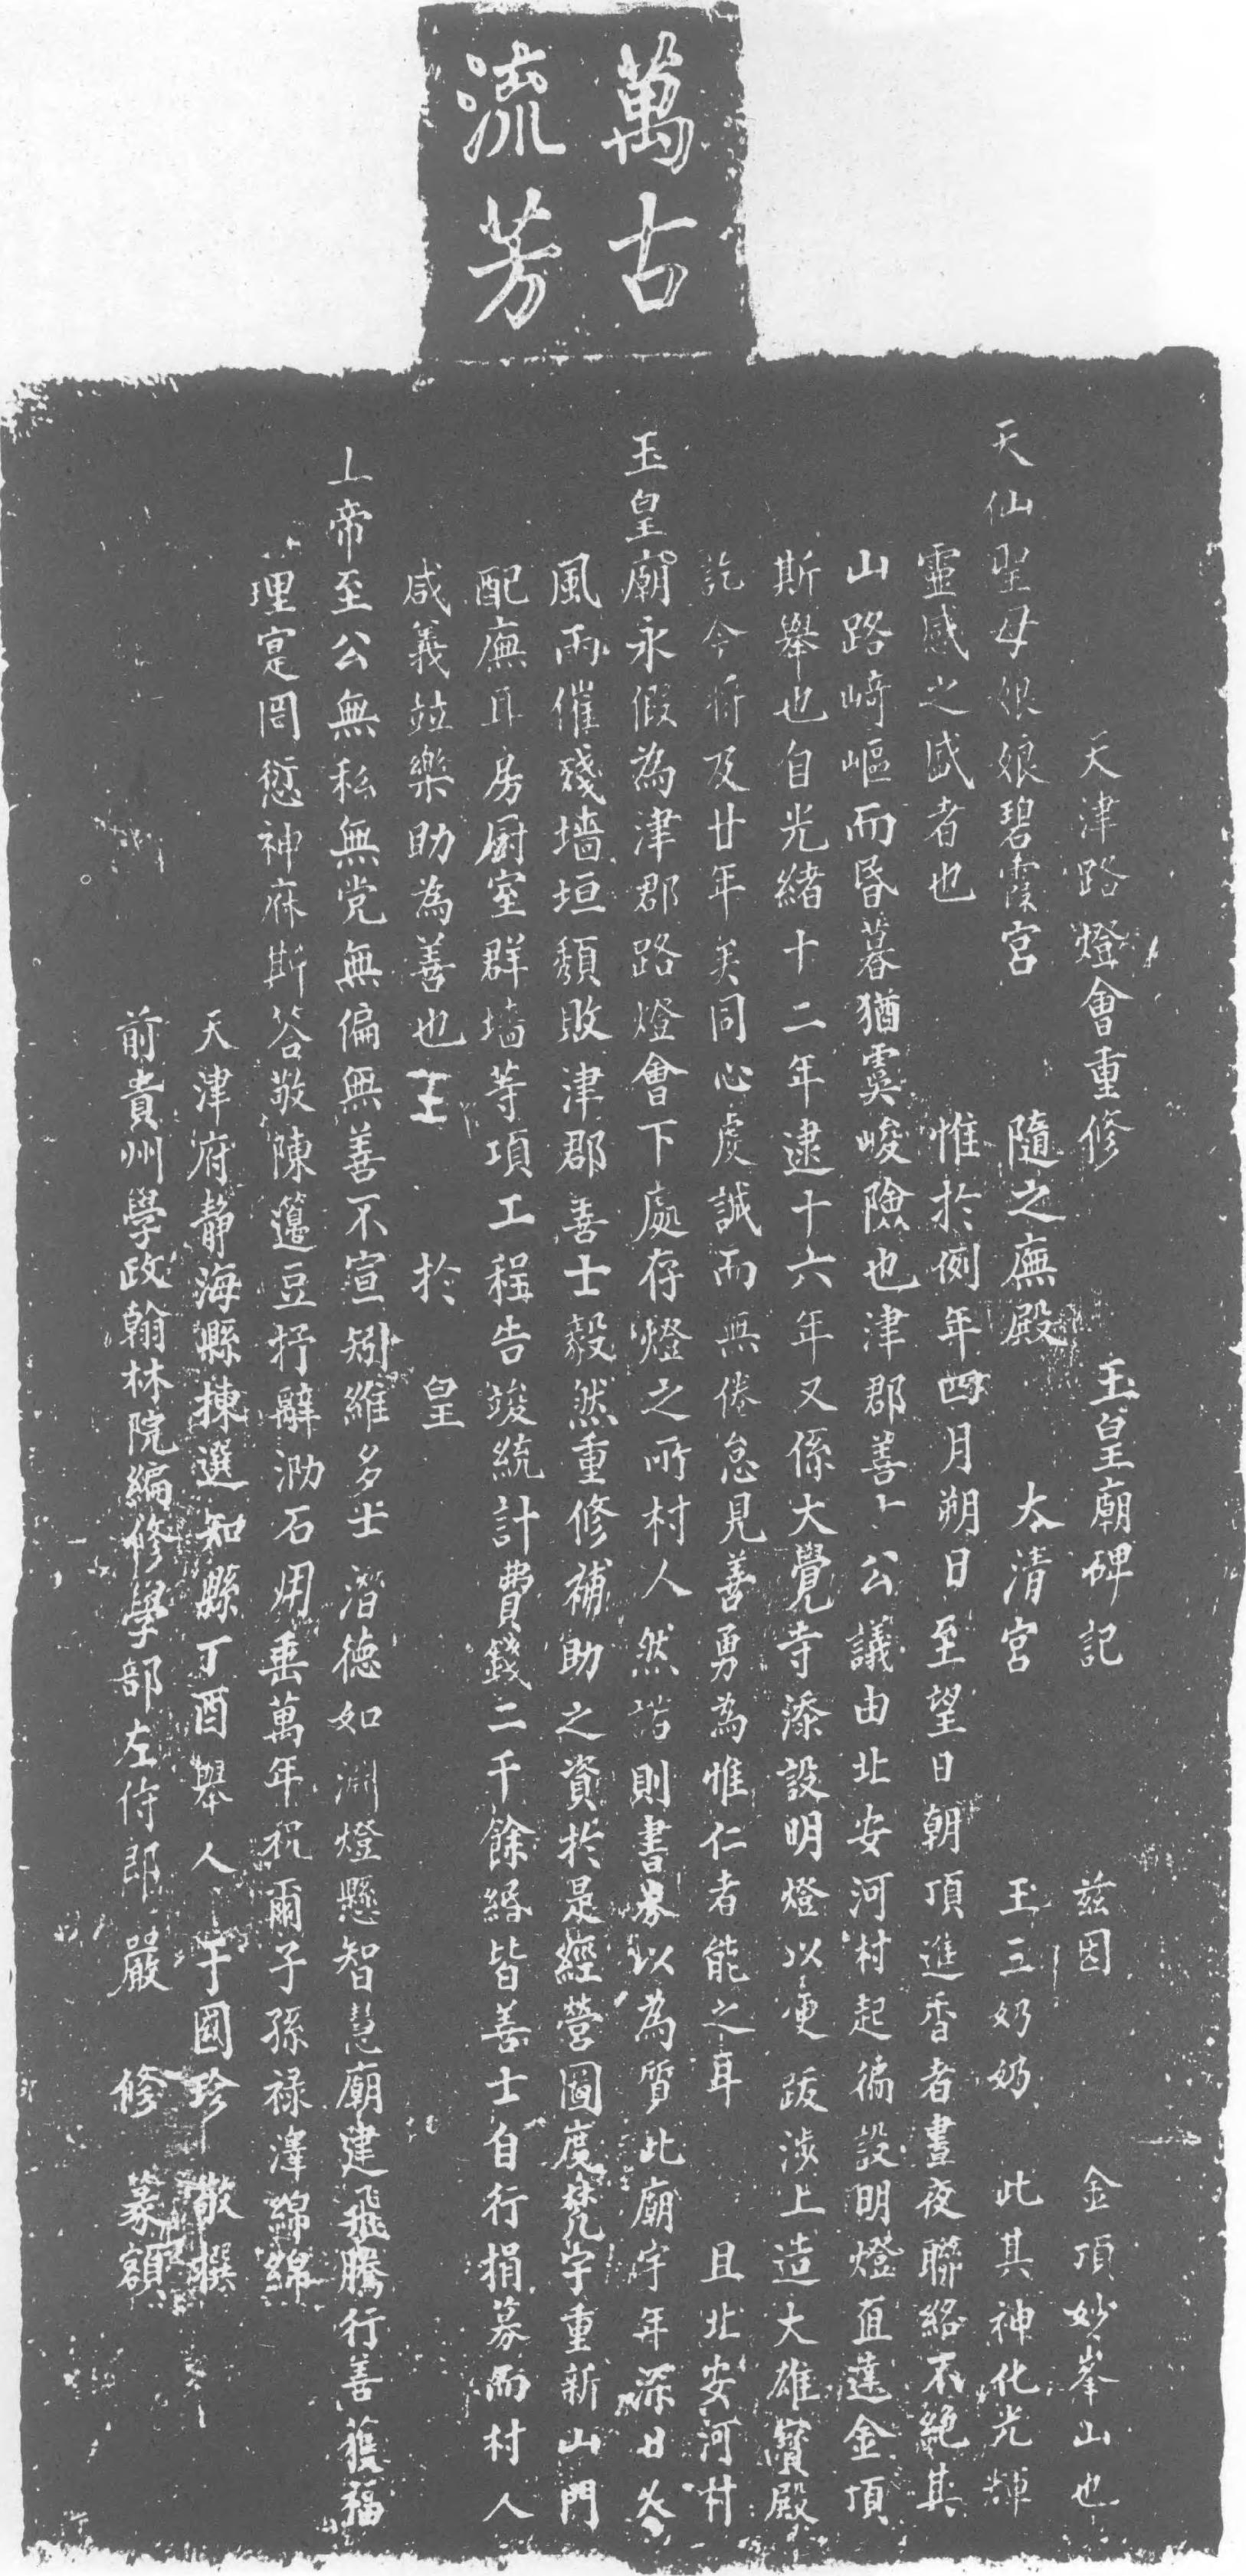 萬古
流芳
天津路燈會重修　玉皇廟碑記　茲因　金頂妙峯山也
天仙聖母娘娘碧霞宮　隨之廡殿　太清宮　王三奶奶　此其神化光輝
靈感之盛者也　惟於例年四月朔日至望日朝頂進香者晝夜聯絡不絕其
山路﨑嶇而昏暮猶虞峻險也津郡善士公議由北安河村起徧設明燈直達金頂
斯舉也自光緒十二年逮十六年又係大覺寺添設明燈以便跋涉上造大雄寶殿
訖今將及廿年矣同心虔誠而無倦怠見善勇為惟仁者能之耳　且北安河村
玉皇廟永假為津郡路燈會下處存燈之所村人然諾則書券以為質此廟宇年深日久
風雨催殘墻垣頹敗津郡善士毅然重修補助之資於是經營圖度梵宇重新山門
配廡耳房厨室群墻等項工程告竣統計費錢二千餘緡皆善士自行捐募而村人
咸義竝樂助為善也　於　皇
上帝至公無私無党無偏無善不宣矧維多士潛德如淵燈懸智慧廟建飛騰行善獲福
理寔罔愆神庥斯答敬陳籩豆抒辭泐石用垂萬年祝爾子孫祿澤綿綿
天津府靜海縣揀選知縣丁酉舉人于國珍　敬撰
前貴州學政翰林院編修學部左侍郎嚴　修　篆額